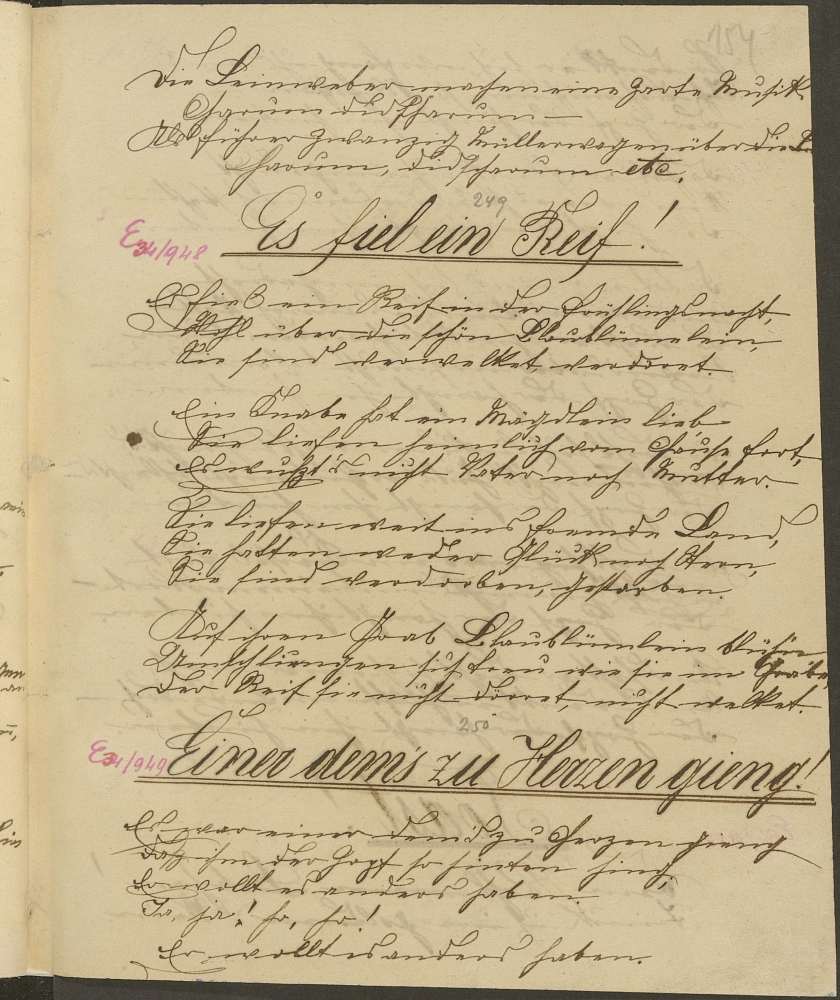 154
Die Leinweber machen eine zarte Musik
Harum didscharum —
Als führen zwanzig Müllerwagen über die
harum, didscharum etc.
249
E 34/948 Es fiel ein Reif!
Es fiel ein Reif in der Frühlingsnacht,
Wohl über die schön Blaublümelein,
Sie sind verwelket, verdorret.
Ein Knabe hat ein Mägdlein lieb
Sie liefen heimlich vom Hause fort,
Es wußt's nicht Vater noch Mutter.
Sie liefen weit ins fremde Land,
Sie hatten weder Glück noch Stern,
Sie sind verdorben, gestorben.
Auf ihren Grab Blaublümlein blühn
Umschlingen sich treu wie sie im Grabe,
Der Reif sie nicht dorret, nicht welket.
250
E 34/949 Einer dem's zu Herzen gieng!
Es war einer dem's zu Herzen gieng
Daß ihm der Zopf so hinten hing,
Er wollt es anders haben.
Ja, ja! ho, ho!
Er wollt es anders haben.